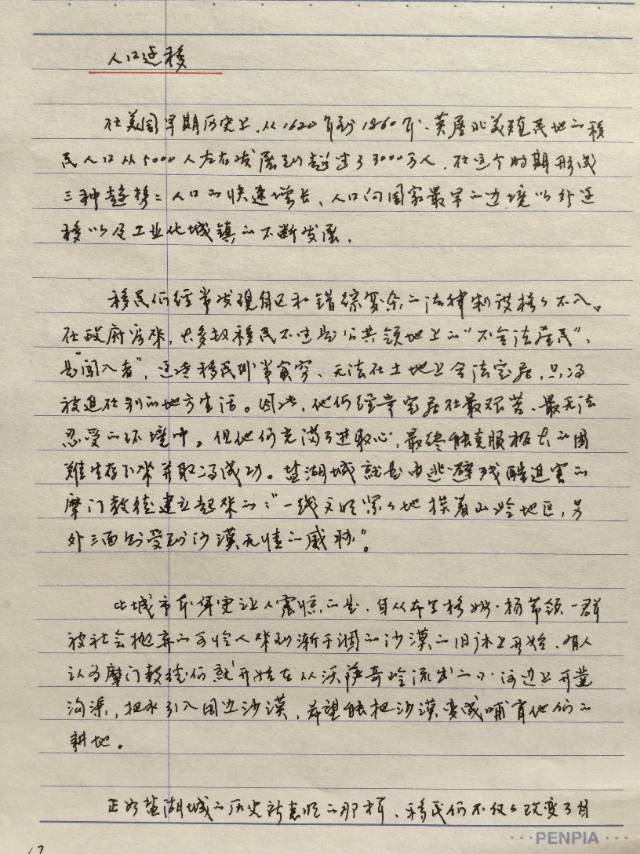 人口迁移
在美国早期历史上,从1620年到1860年,英属北美殖民地的移
民人口从5000人左右发展到超过了3000万人,在这个时期形成
三种趋势:人口的快速增长、人口向国家最早的边境以外迁
移以及工业化城镇的不断发展.
移民们经常发现自己和错综复杂的法律制设格格不入。
在政府看来,大多数移民不过是公共领地上的“不合法居民”,
是“闯入者”,这些移民非常贫穷、无法在土地上合法定居,只得
被迫在别的地方生活。因此,他们经常定居在最艰苦、最无法
忍受的环境中。但他们充满了进取心,最终能克服极大的困
难生存下来并取得成功。盐湖城就是由逃避残酷迫害的
摩门教徒建立起来的:“一线文明紧紧地挨着山岭地区,另
外三面则受到沙漠无情的威胁”。
此城市布局更让人震惊的是,自从布里格姆·杨带领一群
被社会抛弃的可怜人来到渐干涸的沙漠的旧床上开始,有人
认为摩门教徒们就开始在从沃萨奇岭流出的小河边上开凿
沟渠,把水引入周边沙漠,希望能把沙漠变成哺育他们的
耕地。
正如盐湖城的历史所表明的那样,移民们不仅仅改变了自
PENPIA